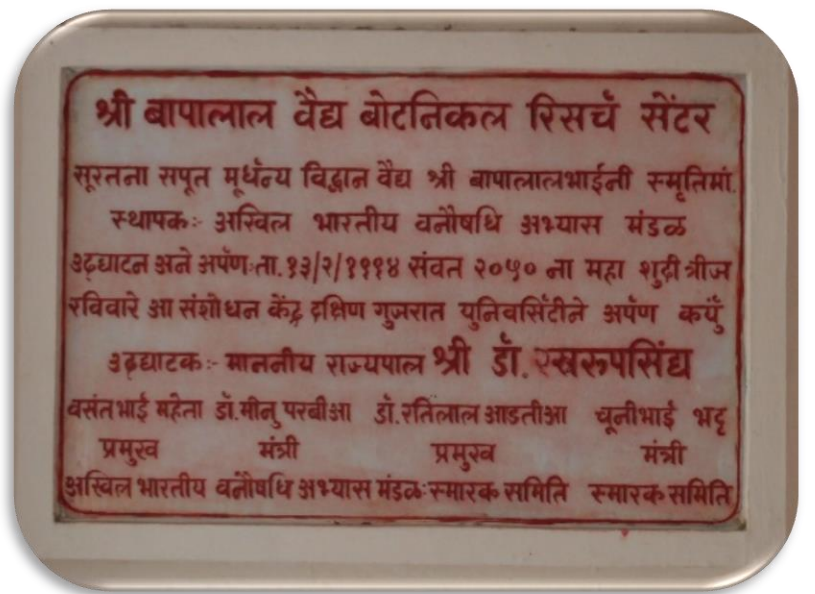 श्री बापालाल वैद्य बोटनिकल रिसर्च सेंटर
सूरतना सपूत मूर्धन्य विद्वान वैद्य श्री बापालालभाईनी स्मृतिमां.
स्थापकः- अखिल भारतीय वनौषधि अभ्यास मंडळ
उद्घाटन अने अर्पणःता. १३/२/१९९४ संवत २०५० ना महा शुदी त्रीज
रविवारे आ संशोधन केंद्र दक्षिण गुजरात युनिवर्सिटीने अर्पण कर्युं
उद्घाटकः- माननीय राज्यपाल श्री डॉ. स्वरुपसिंघ
वसंतभाई महेता डॉ.मीनु परबीआ डॉ.रतिलाल आडतीआ चूनीभाई भट्ट
प्रमुख मंत्री प्रमुख मंत्री
अखिल भारतीय वनौषधि अभ्यास मंडळः स्मारक समिति स्मारक समिति